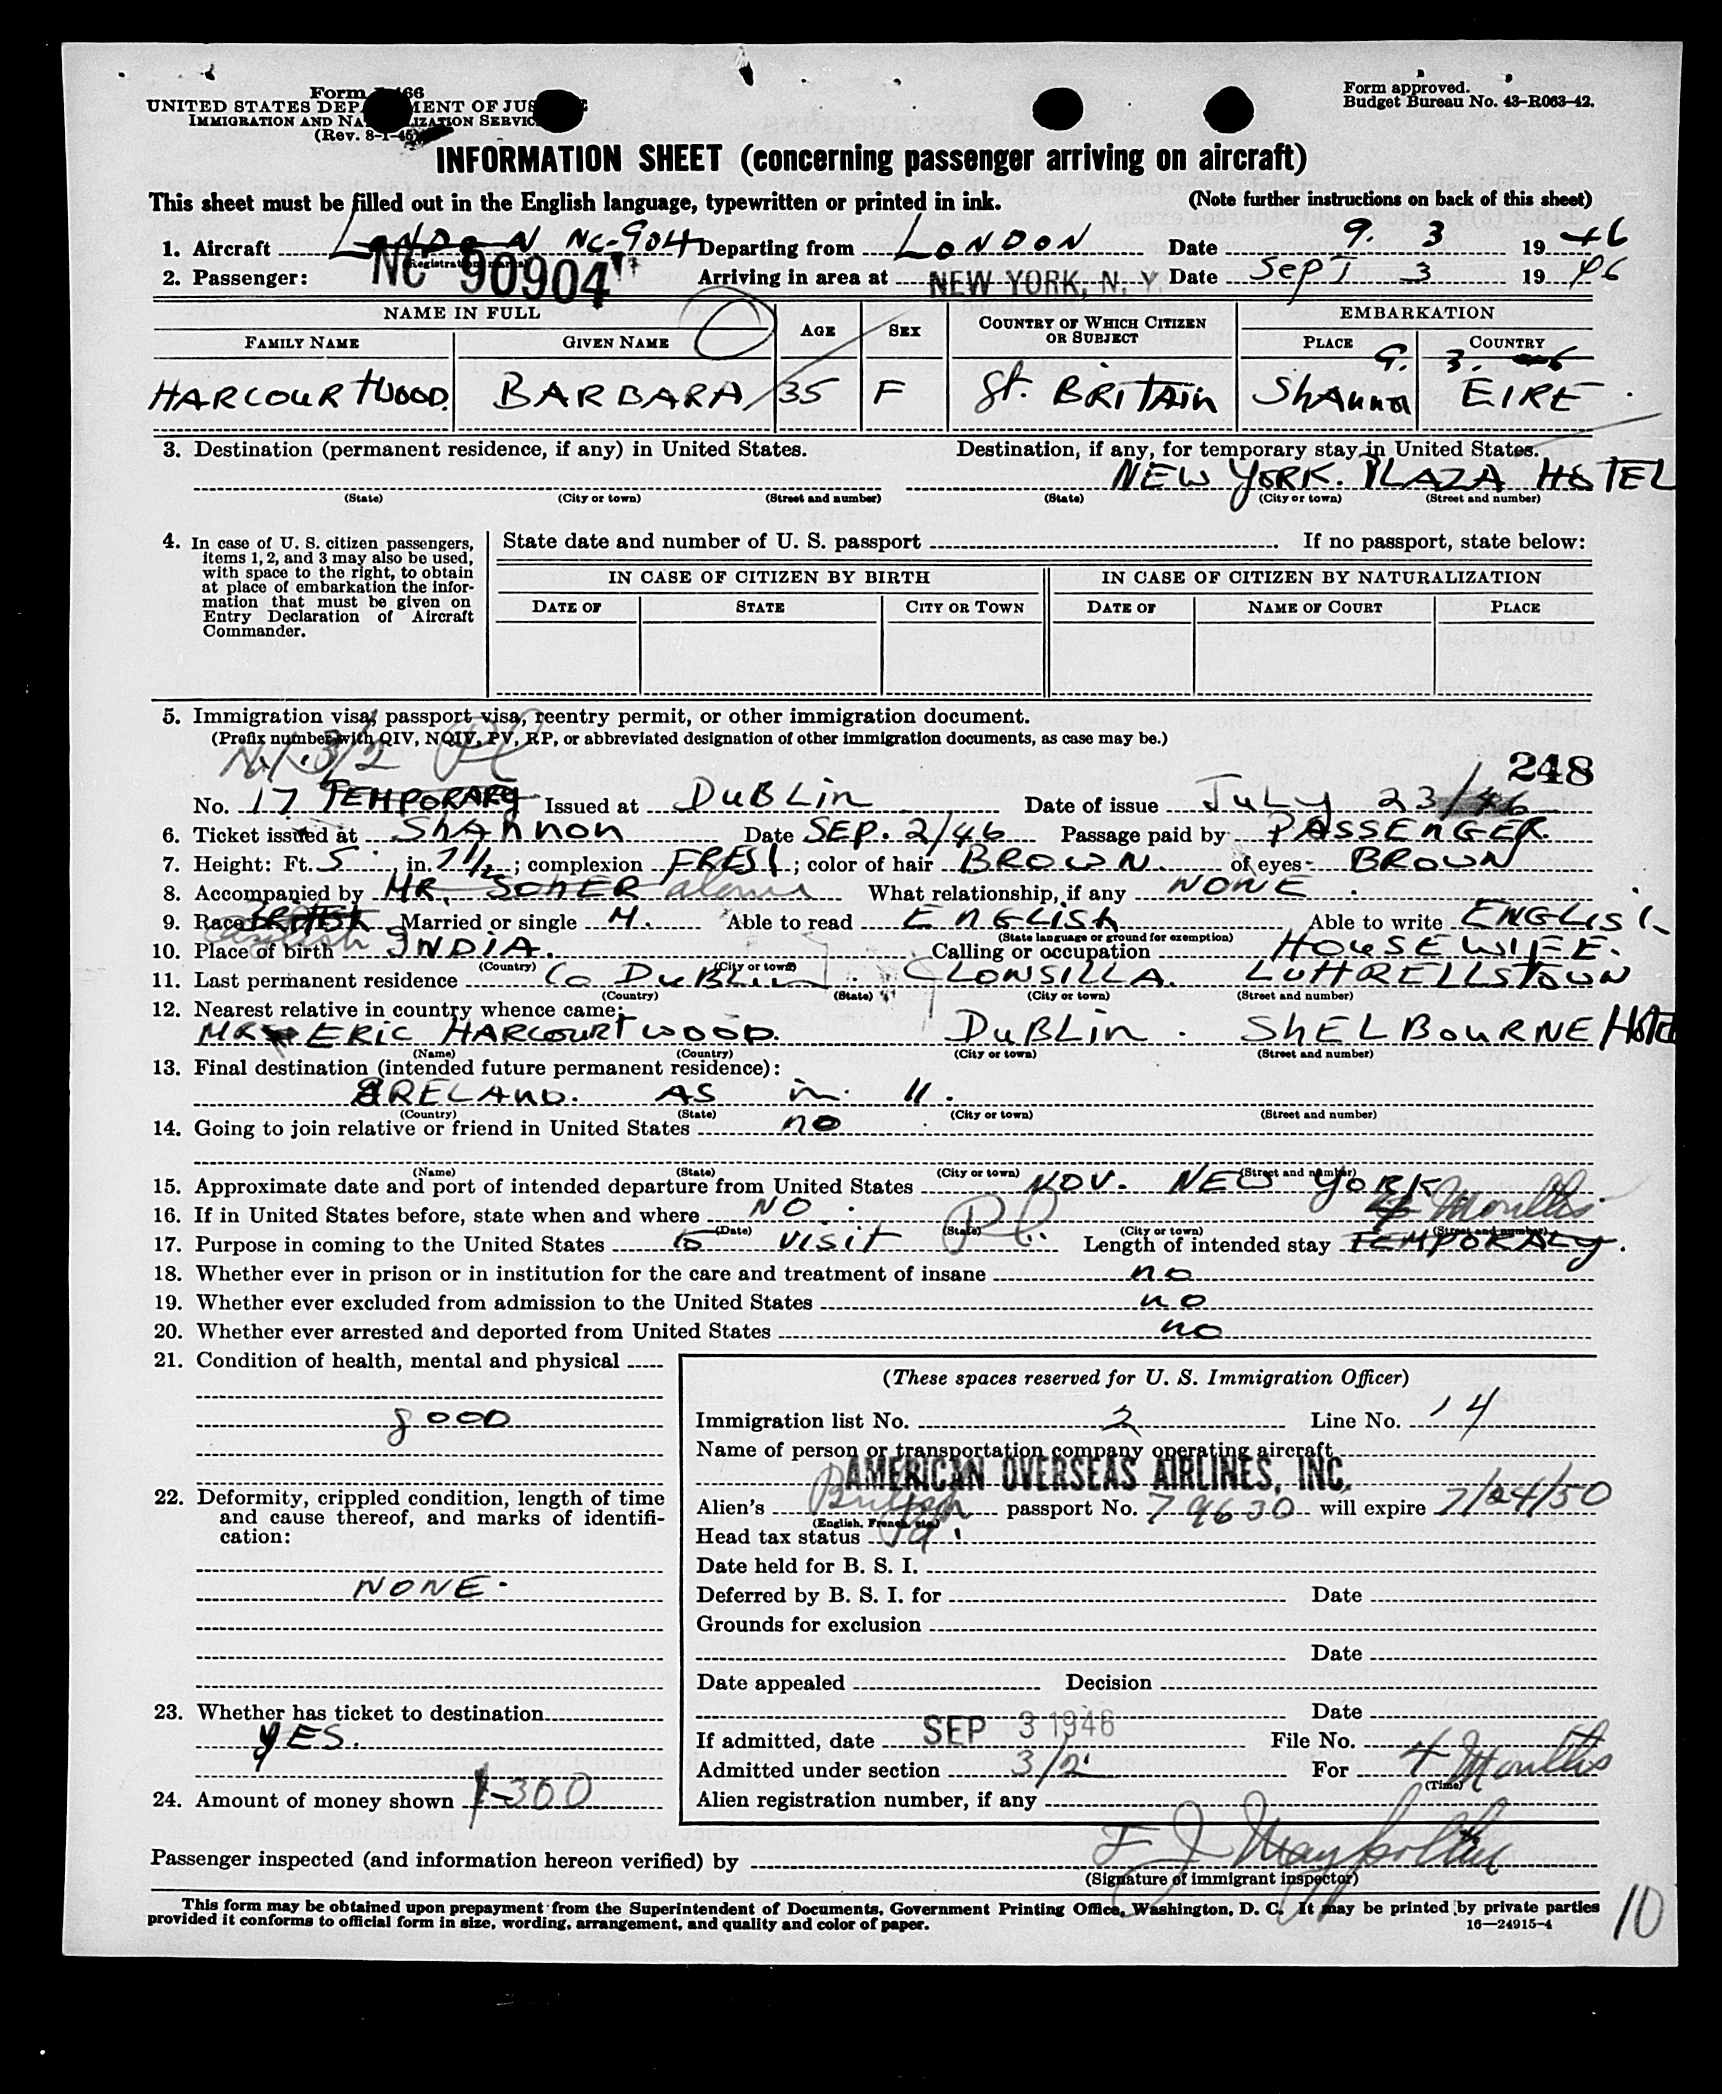 Form 66
UNITED STATES DEP MENT OF JUS
IMMIGRATION AND NA IZATION SERVIC
(Rev. 8-1-45)
Form approved.
Budget Bureau No. 43-R063-42.
INFORMATION SHEET (concerning passenger arriving on aircraft)
This sheet must be filled out in the English language, typewritten or printed in ink. (Note further instructions on back of this sheet)
1. Aircraft LONDON NC-904 Departing from LONDON Date 9. 3 19 46
(Registration marks)
NC 90904
2. Passenger: Arriving in area at NEW YORK, N. Y. Date SEPT 3 19 46
NAME IN FULL AGE SEX COUNTRY OF WHICH CITIZEN OR SUBJECT EMBARKATION
FAMILY NAME GIVEN NAME PLACE COUNTRY
9. 3. 46
HARCOURTWOOD. BARBARA 35 F Gt. BRITAIN SHANNON EIRE
3. Destination (permanent residence, if any) in United States. Destination, if any, for temporary stay in United States.
NEW YORK. PLAZA HOTEL
(State) (City or town) (Street and number) (State) (City or town) (Street and number)
4. In case of U. S. citizen passengers,
items 1, 2, and 3 may also be used,
with space to the right, to obtain
at place of embarkation the infor-
mation that must be given on
Entry Declaration of Aircraft
Commander.
State date and number of U. S. passport If no passport, state below:
IN CASE OF CITIZEN BY BIRTH IN CASE OF CITIZEN BY NATURALIZATION
DATE OF STATE CITY OR TOWN DATE OF NAME OF COURT PLACE
5. Immigration visa, passport visa, reentry permit, or other immigration document.
(Prefix number with QIV, NQIV, PV, RP, or abbreviated designation of other immigration documents, as case may be.)
3/2
248
No. 17 TEMPORARY Issued at DUBLIN Date of issue JULY 23/46
6. Ticket issued at SHANNON Date SEP. 2/46 Passage paid by PASSENGER.
7. Height: Ft. 5 in. 7 1/2; complexion FRESH; color of hair BROWN. of eyes BROWN
8. Accompanied by MR. SOHER alone What relationship, if any NONE
9. Race BRITISH English Married or single M. Able to read ENGLISH Able to write ENGLISH
(State language or ground for exemption)
10. Place of birth INDIA. Calling or occupation HOUSEWIFE.
(Country) (City or town)
11. Last permanent residence CO DUBLIN CLONSILLA. LUTTRELLSTOWN
(Country) (State) (City or town) (Street and number)
12. Nearest relative in country whence came:
MR ERIC HARCOURTWOOD. DUBLIN. SHELBOURNE HOTEL
(Name) (Country) (City or town) (Street and number)
13. Final destination (intended future permanent residence):
IRELAND. AS in 11.
(Country) (State) (City or town) (Street and number)
14. Going to join relative or friend in United States NO
(Name) (State) (City or town) (Street and number)
15. Approximate date and port of intended departure from United States NOV. NEW YORK
16. If in United States before, state when and where NO
(Date) (State) (City or town) (Street and number)
4 Months
17. Purpose in coming to the United States to VISIT Length of intended stay TEMPORARY.
18. Whether ever in prison or in institution for the care and treatment of insane no
19. Whether ever excluded from admission to the United States no
20. Whether ever arrested and deported from United States no
21. Condition of health, mental and physical
GOOD
22. Deformity, crippled condition, length of time
and cause thereof, and marks of identifi-
cation:
NONE.
23. Whether has ticket to destination
YES.
24. Amount of money shown $300
(These spaces reserved for U. S. Immigration Officer)
Immigration list No. 2 Line No. 14
Name of person or transportation company operating aircraft
AMERICAN OVERSEAS AIRLINES, INC.
Alien's British passport No. 79630 will expire 7/24/50
(English, French, etc.)
Head tax status
Date held for B. S. I.
Deferred by B. S. I. for Date
Grounds for exclusion
Date
Date appealed Decision
Date
If admitted, date SEP 3 1946 File No.
Admitted under section 3/2 For 4 Months
(Time)
Alien registration number, if any
Passenger inspected (and information hereon verified) by
(Signature of immigrant inspector)
This form may be obtained upon prepayment from the Superintendent of Documents, Government Printing Office, Washington, D. C. It may be printed by private parties
provided it conforms to official form in size, wording, arrangement, and quality and color of paper. 16—24915-4
10